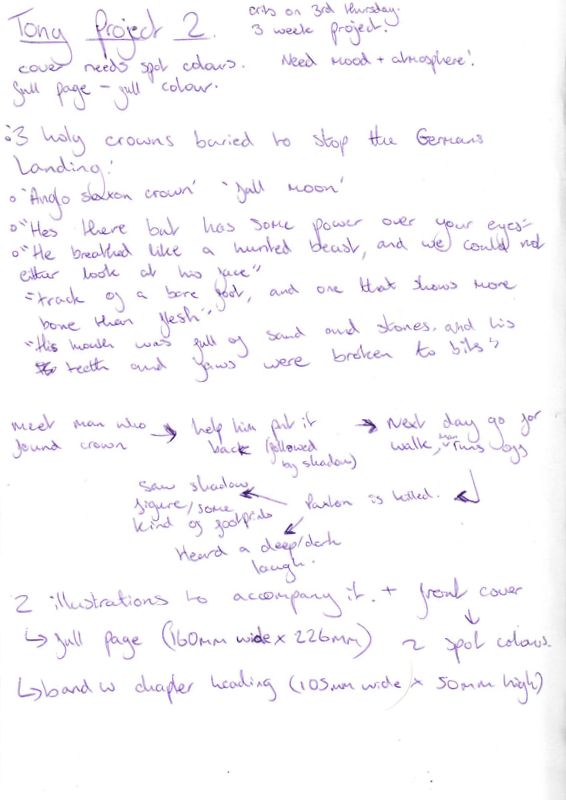 Tony Project 2.
crits on 3rd thursday.
3 week project.
cover needs spot colours. Need Mood + atmosphere!
full page - full colour.
"3 holy crowns buried to stop the Germans
Landing."
o 'Anglo saxon crown' 'full moon'
o "Hes there but has some power over your eyes"
o "He breathed like a hunted beast, and we could not
either look at his face"
"track of a bare foot, and one that shows more
bone than flesh"
"His mouth was full of sand and stones, and his
teeth and jaws were broken to bits"
meet man who → help him put it → Next day go for
found crown back (followed walk, man runs off
by shadow)
Saw shadow
figure/some Paxton is killed.
kind of footprints
Heard a deep/dark
laugh.
2 illustrations to accompany it. + front cover
↳ full page (160mm wide x 226mm) 2 spot colours.
↳ b and w chapter heading (105mm wide x 50mm high)